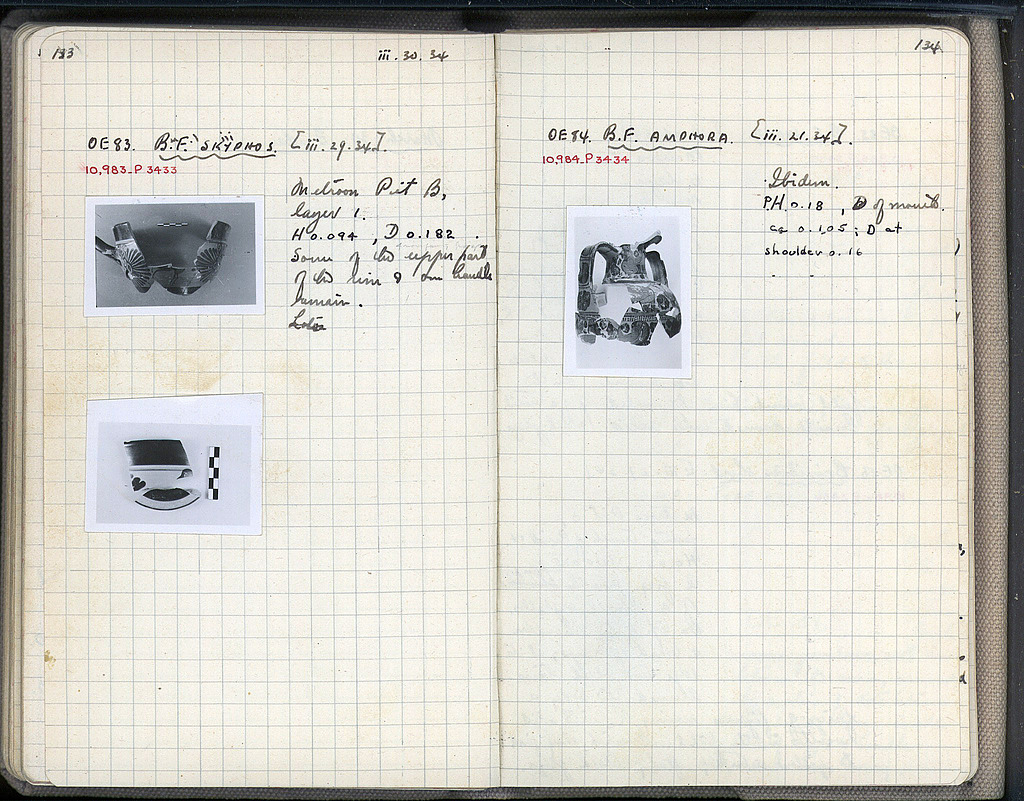 133
iii. 30. 34
OE 83. B.F. SKYPHOS. [iii. 29. 34].
10,983_P 3433
Metroon Pit B,
layer 1.
H 0.094 , D 0.182 .
Some of the upper part
of the rim & one handle
remain.
134
OE 84. B.F. AMPHORA. [iii. 21. 34].
10,984_P 3434
Ibidem.
P.H. 0.18 , D of mouth.
ca 0.105 ; D at
shoulder 0.16